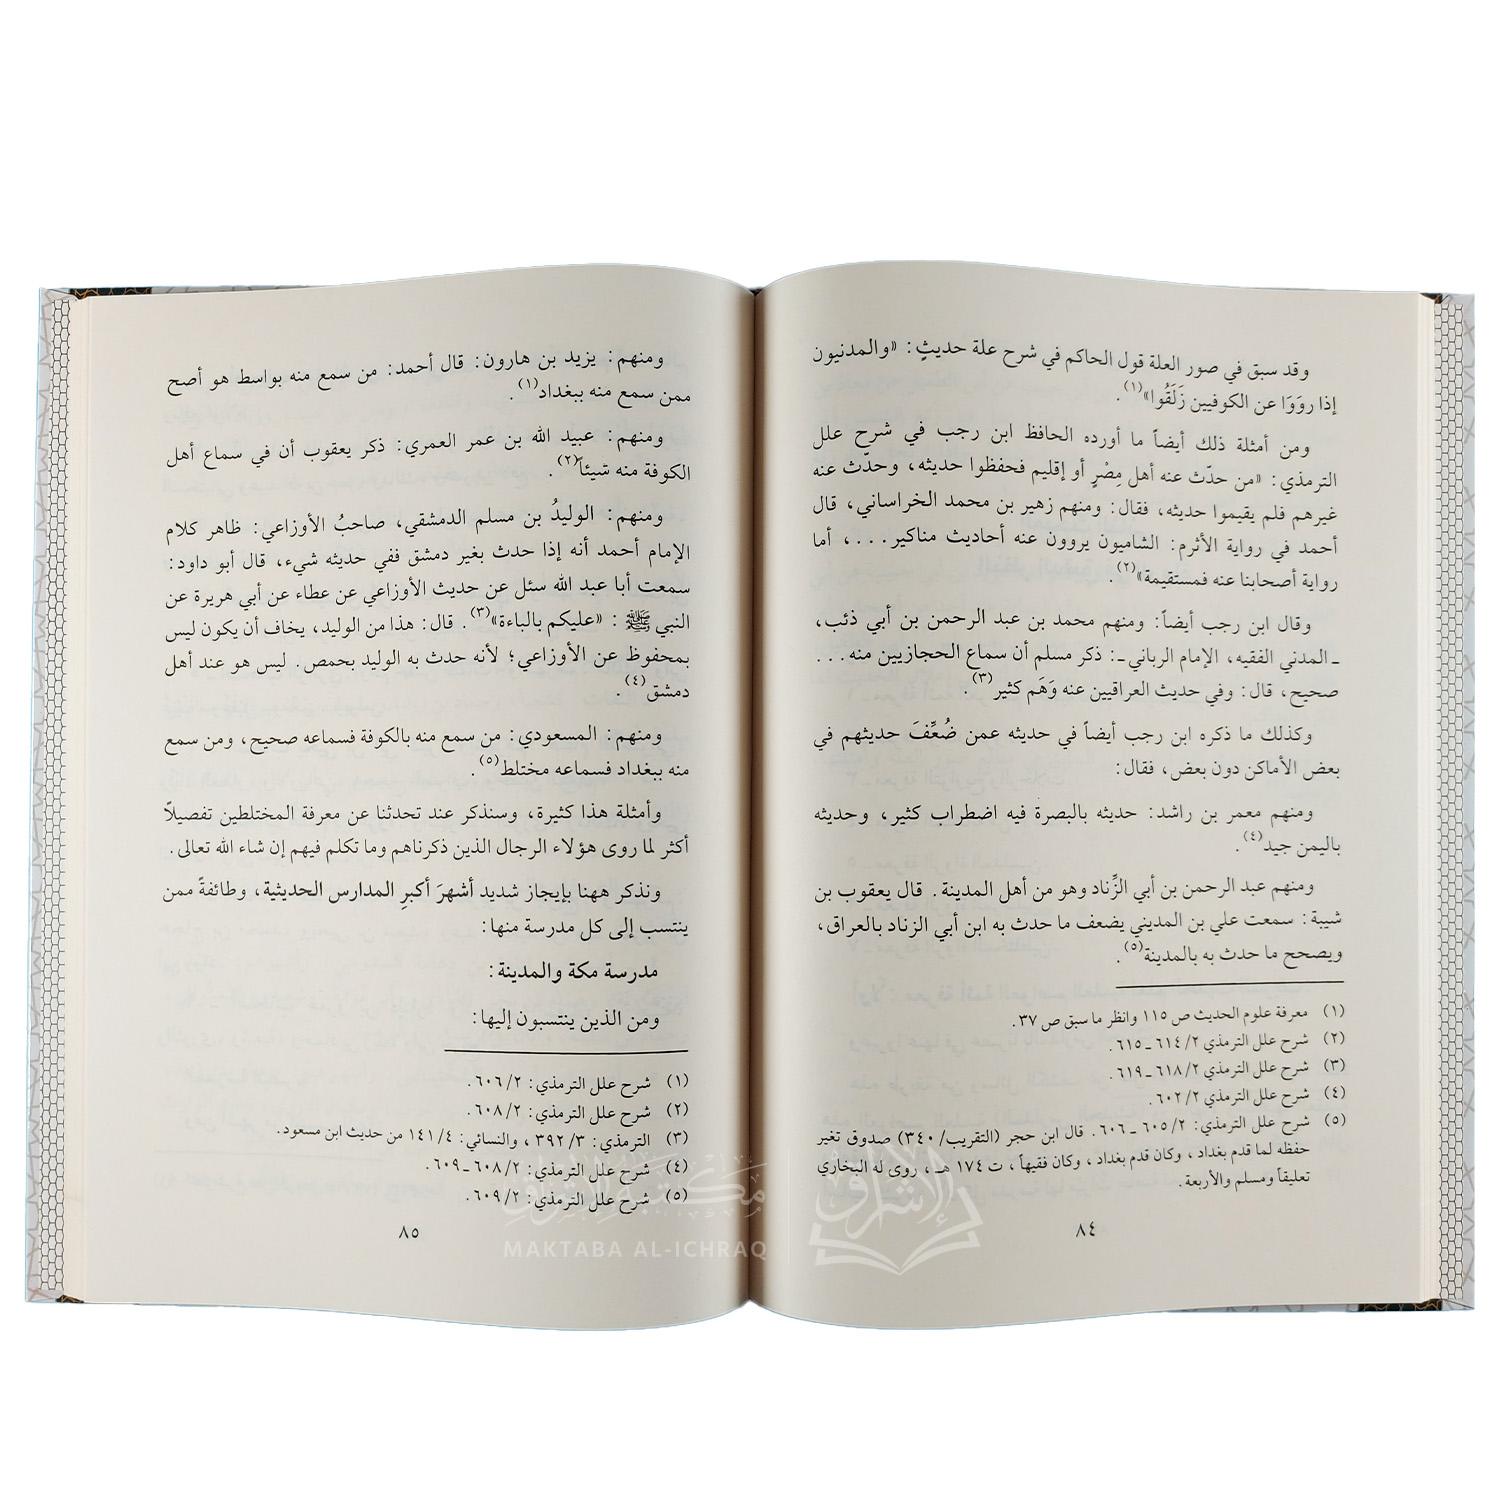 وقد سبق في صور العلة قول الحاكم في شرح علة حديثٍ: «والمدنيون
إذا رووَا عن الكوفيين زَلَقُوا»(١).
ومن أمثلة ذلك أيضاً ما أورده الحافظ ابن رجب في شرح علل
الترمذي: «من حدّث عنه أهل مِصْرٍ أو إقليم فحفظوا حديثه، وحدّث عنه
غيرهم فلم يقيموا حديثه، فقال: ومنهم زهير بن محمد الخراساني، قال
أحمد في رواية الأثرم: الشاميون يروون عنه أحاديث مناكير...، أما
رواية أصحابنا عنه فمستقيمة»(٢).
وقال ابن رجب أيضاً: ومنهم محمد بن عبد الرحمن بن أبي ذئب،
ـ المدني الفقيه، الإمام الرباني ـ: ذكر مسلم أن سماع الحجازيين منه ...
صحيح، قال: وفي حديث العراقيين عنه وَهَم كثير(٣).
وكذلك ما ذكره ابن رجب أيضاً في حديثه عمن ضُعِّفَ حديثهم في
بعض الأماكن دون بعض، فقال:
ومنهم معمر بن راشد: حديثه بالبصرة فيه اضطراب كثير، وحديثه
باليمن جيد(٤).
ومنهم عبد الرحمن بن أبي الزِّناد وهو من أهل المدينة. قال يعقوب بن
شيبة: سمعت علي بن المديني يضعف ما حدث به ابن أبي الزناد بالعراق،
ويصحح ما حدث به بالمدينة(٥).
(١) معرفة علوم الحديث ص ١١٥ وانظر ما سبق ص ٣٧.
(٢) شرح علل الترمذي ٦١٤/٢ ـ ٦١٥.
(٣) شرح علل الترمذي ٦١٨/٢ ـ ٦١٩.
(٤) شرح علل الترمذي ٦٠٢/٢.
(٥) شرح علل الترمذي: ٦٠٥/٢ ـ ٦٠٦. قال ابن حجر (التقريب/ ٣٤٠) صدوق تغير
حفظه لما قدم بغداد، وكان قدم بغداد، وكان فقيهاً، ت ١٧٤ هـ، روى له البخاري
تعليقاً ومسلم والأربعة.
٨٤
ومنهم: يزيد بن هارون: قال أحمد: من سمع منه بواسط هو أصح
ممن سمع منه ببغداد(١).
ومنهم: عبيد الله بن عمر العمري: ذكر يعقوب أن في سماع أهل
الكوفة منه شيئاً(٢).
ومنهم: الوليدُ بن مسلم الدمشقي، صاحبُ الأوزاعي: ظاهر كلام
الإمام أحمد أنه إذا حدث بغير دمشق ففي حديثه شيء، قال أبو داود:
سمعت أبا عبد الله سئل عن حديث الأوزاعي عن عطاء عن أبي هريرة عن
النبي ﷺ: «عليكم بالباءة»(٣). قال: هذا من الوليد، يخاف أن يكون ليس
بمحفوظ عن الأوزاعي؛ لأنه حدث به الوليد بحمص. ليس هو عند أهل
دمشق(٤).
ومنهم: المسعودي: من سمع منه بالكوفة فسماعه صحيح، ومن سمع
منه ببغداد فسماعه مختلط(٥).
وأمثلة هذا كثيرة، وسنذكر عند تحدثنا عن معرفة المختلطين تفصيلاً
أكثر لما روى هؤلاء الرجال الذين ذكرناهم وما تكلم فيهم إن شاء الله تعالى.
ونذكر ههنا بإيجاز شديد أشهرَ أكبرِ المدارس الحديثية، وطائفةً ممن
ينتسب إلى كل مدرسة منها:
مدرسة مكة والمدينة:
ومن الذين ينتسبون إليها:
(١) شرح علل الترمذي: ٦٠٦/٢.
(٢) شرح علل الترمذي: ٦٠٨/٢.
(٣) الترمذي: ٣٩٢/٣، والنسائي: ١٤١/٤ من حديث ابن مسعود.
(٤) شرح علل الترمذي: ٦٠٨/٢ ـ ٦٠٩.
(٥) شرح علل الترمذي: ٦٠٩/٢.
٨٥
مكتبة الإشراق
MAKTABA AL-ICHRAQ
الإشراق